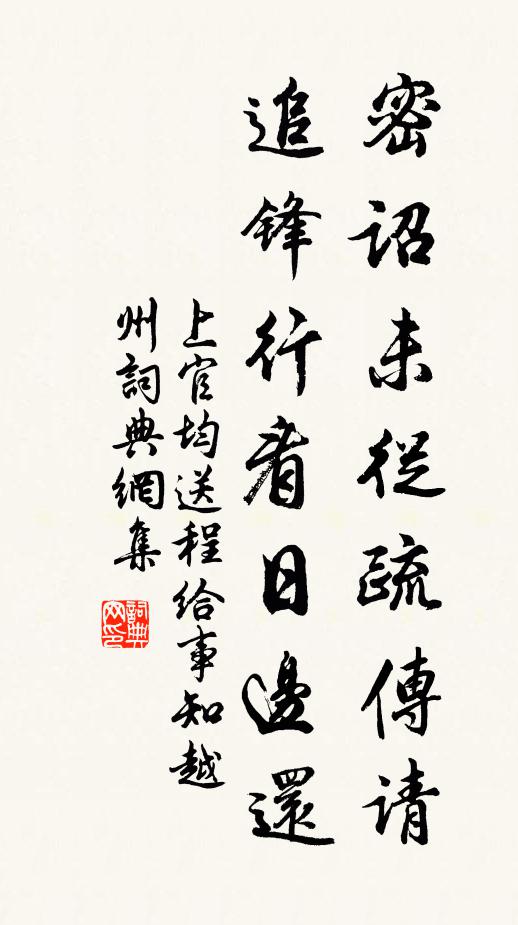 密詔未從疏傳请
追锋行看日邊還
上官均送程给事知越
州詞典網集
詞典网印